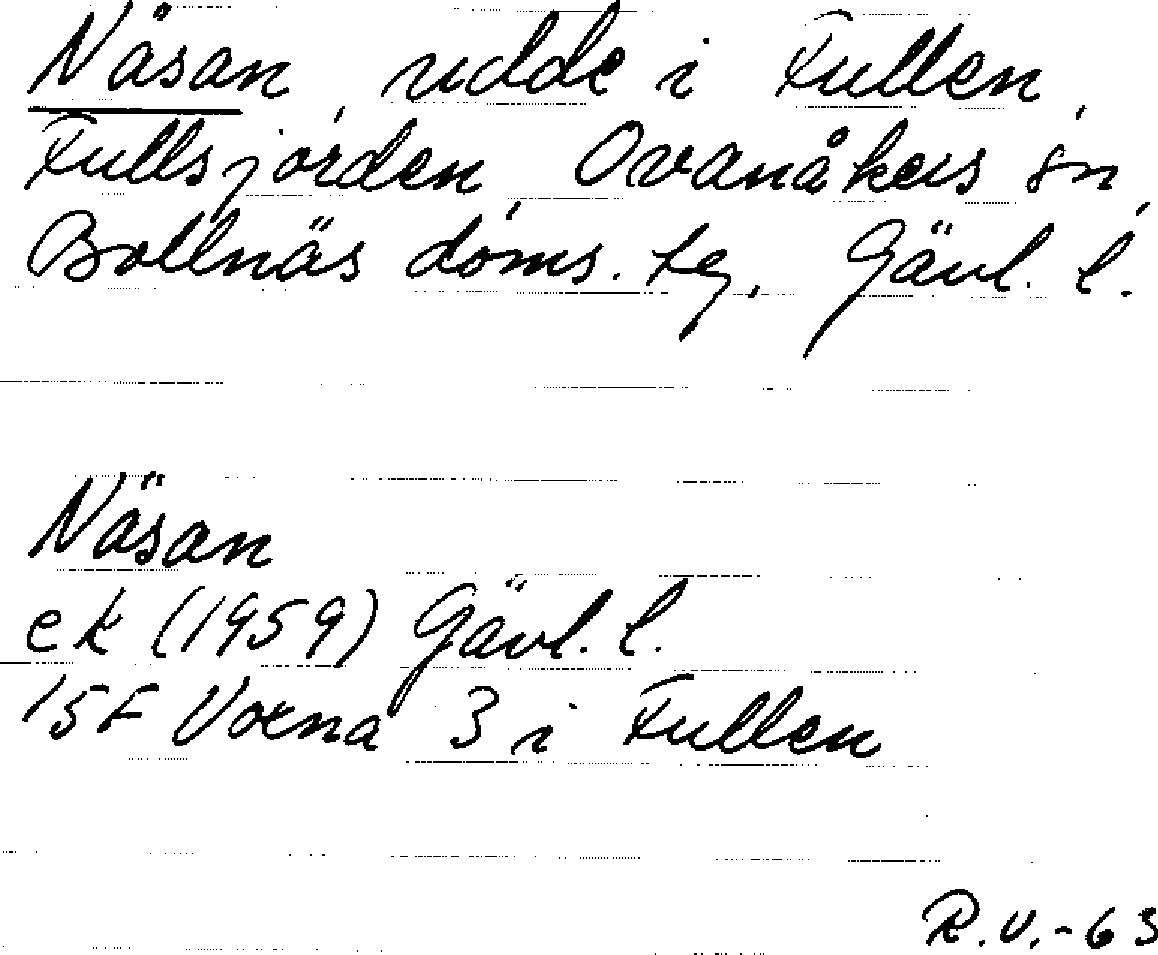 Näsan, udde i Fullen,
Fullsjorden, Ovanåkers sn,
Bollnäs doms. tg, Gävl. l.
Näsan
ek (1959) Gävl. l.
15F Voxna 3 i Fullen
R.V.-63